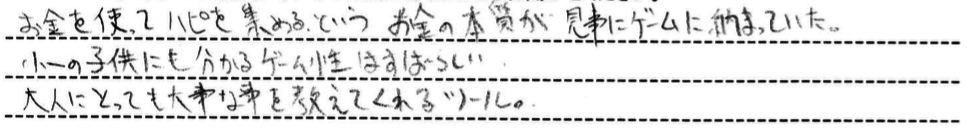 お金を使ってハピを集める、という お金の本質が 見事にゲームに納まっていた。
小一の子供にも分かるゲーム性はすばらしい.
大人にとっても大事な事を教えてくれるツール。